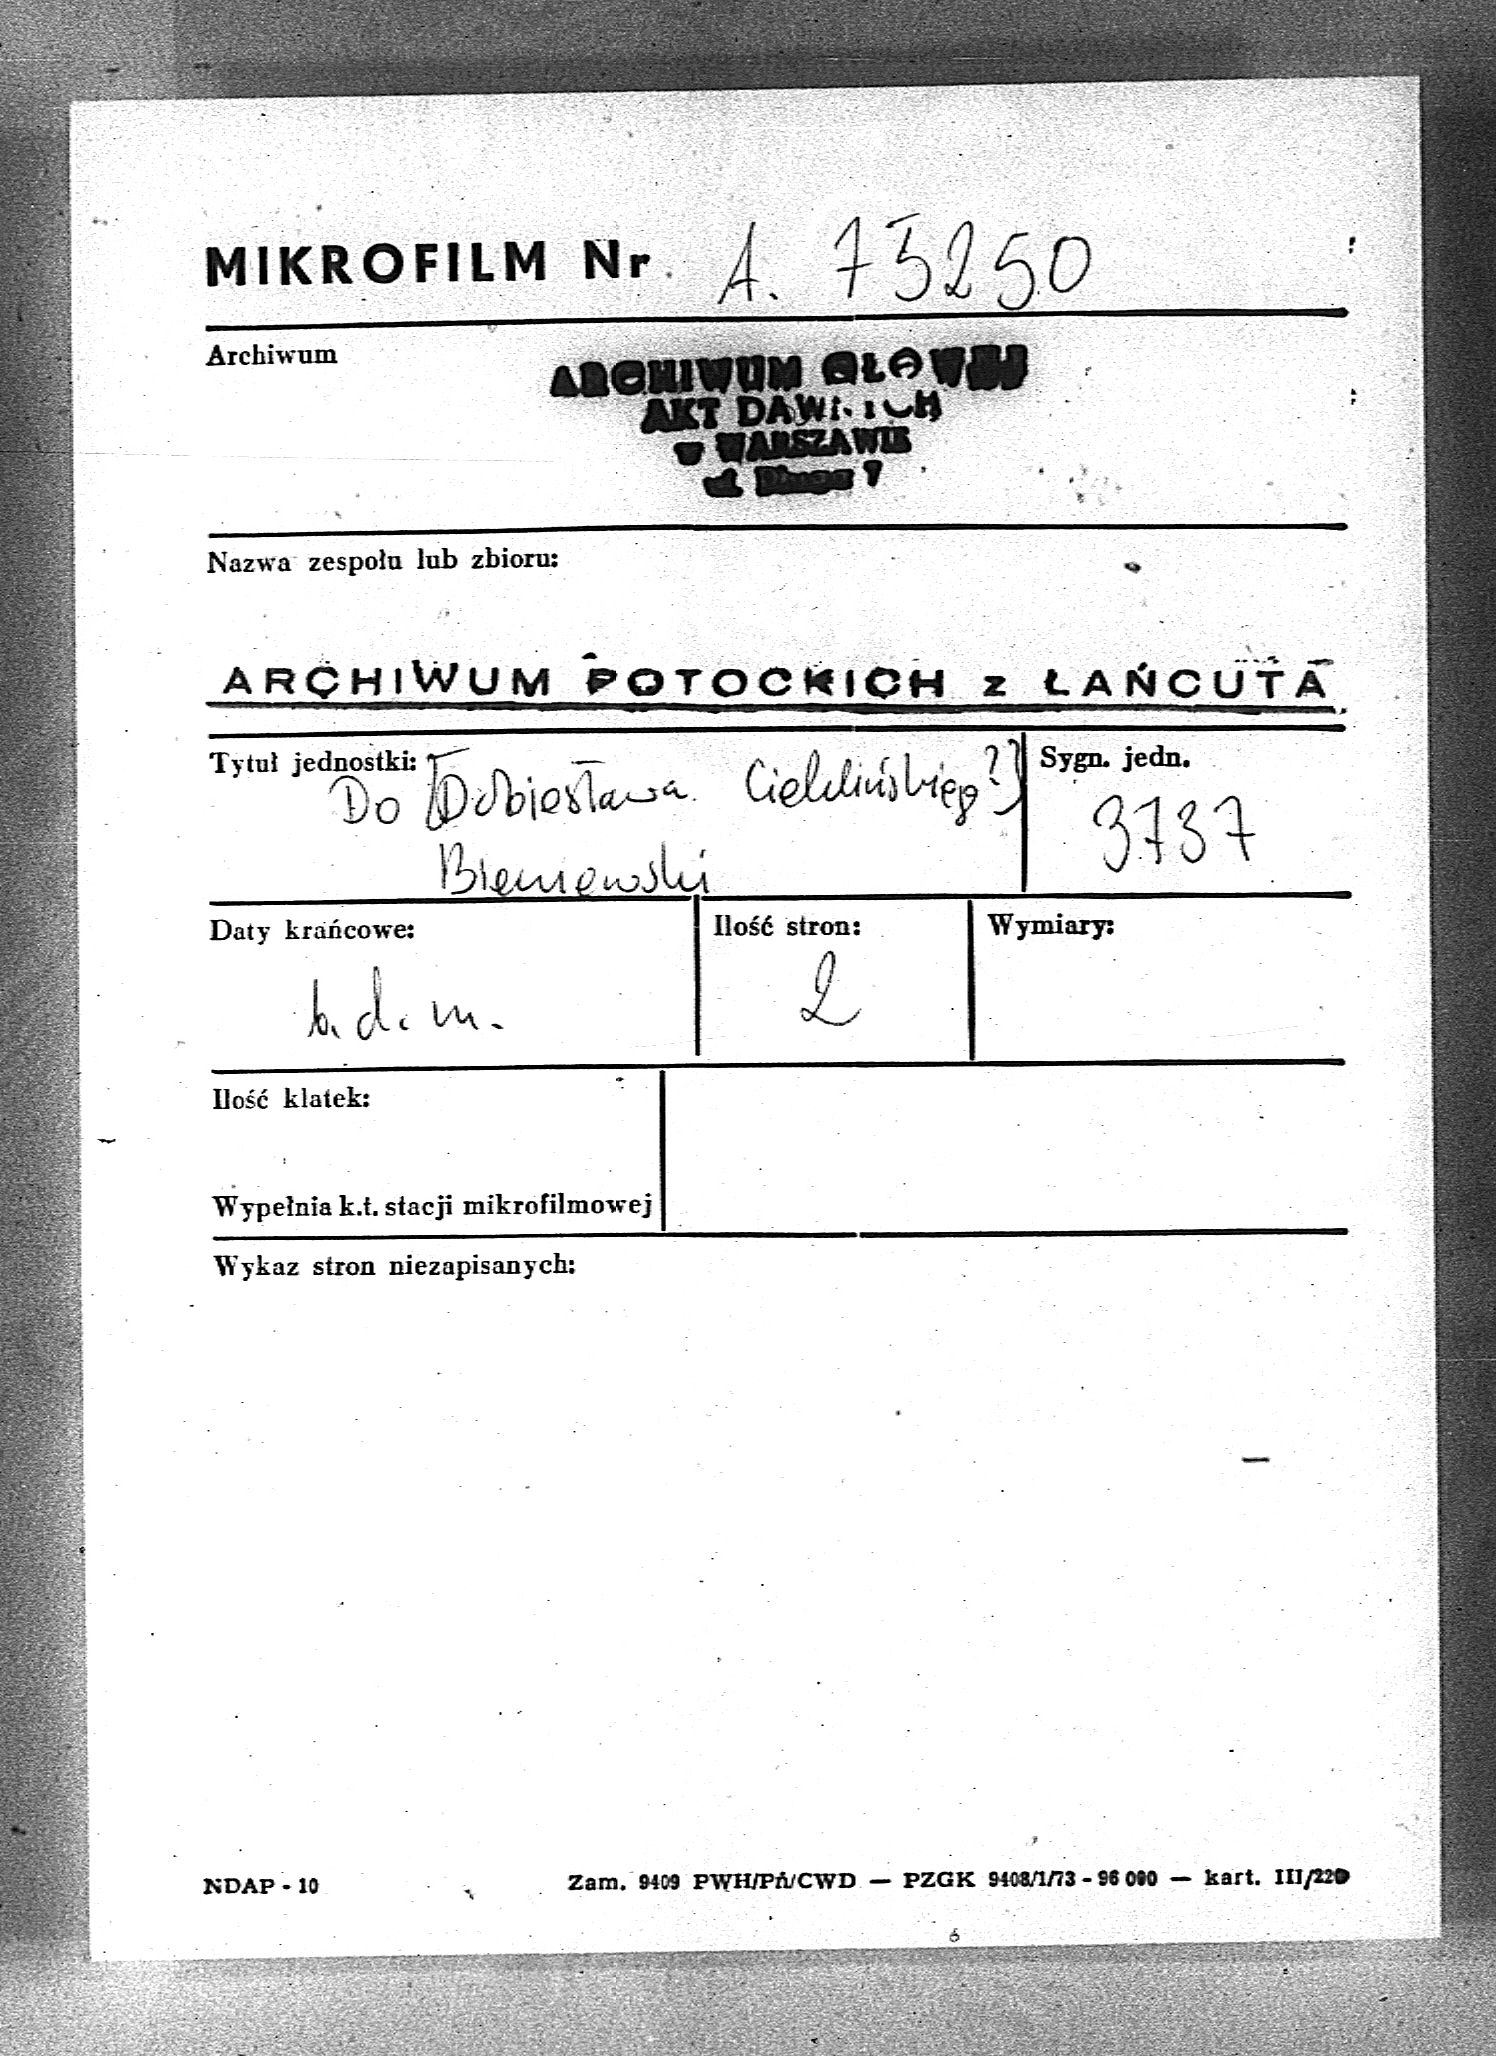 MIKROFILM Nr A. 75250
Archiwum
ARCHIWUM GŁÓWNE
AKT DAWNYCH
w WARSZAWIE
ul. Długa 7
Nazwa zespołu lub zbioru:
ARCHIWUM POTOCKICH z ŁAŃCUTA
Tytuł jednostki:
Sygn. jedn.
Do [Dobiesława Cieklińskiego?]
3737
Bieniewski
Daty krańcowe:
Ilość stron:
Wymiary:
b. d. m.
2
Ilość klatek:
Wypełnia k.t. stacji mikrofilmowej
Wykaz stron niezapisanych:
NDAP - 10
Zam. 9409 PWH/PŃ/CWD — PZGK 9408/1/73 - 96 000 — kart. III/220